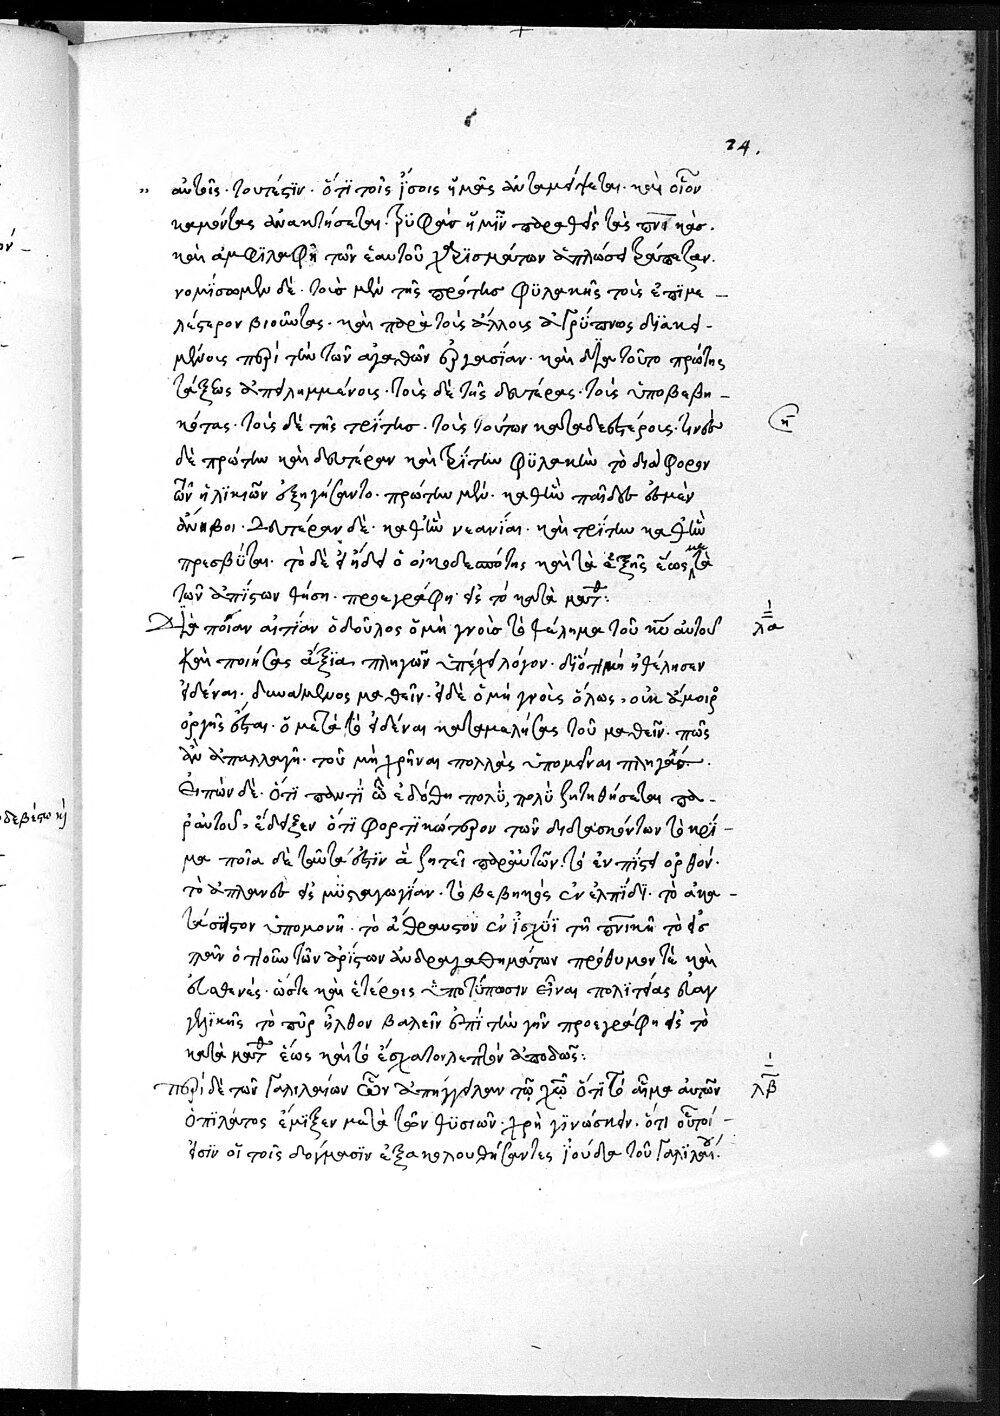 24.
αὐτοῖς· τουτέστιν· ὅτι τοῖς ἴσοις ἡμᾶς ἀνταμείψεται· καὶ οἷον
καμόντας ἀνακτήσεται· τρυφὰς ἡμῖν παραθεὶς τὰς πνικάς·
καὶ ἀμφιλαφῆ τῶν ἑαυτοῦ χαρισμάτων ἁπλώσει τράπεζαν.
νομίσωμεν δὲ· τοὺς μὲν τῆς πρώτης φυλακῆς τοὺς ἐπιμε-
λέστερον βιοῦντας· καὶ παρὰ τοὺς ἄλλους ἀγρύπνως διακει-
μένοις περὶ τὴν τῶν ἀγαθῶν ἐργασίαν· καὶ διὰ τοῦτο πρώτης
τάξεως ἀπειλημμένοις· τοὺς δὲ τῆς δευτέρας· τοὺς ὑποβεβη-
κότας· τοὺς δὲ τῆς τρίτης· τοὺς τούτων καταδεεστέροις· τινὲς
δὲ πρώτην καὶ δευτέραν καὶ τρίτην φυλακὴν τὸ διάφορον
τῶν ἡλικιῶν ἐξηγήσαντο· πρώτην μὲν· καθ' ἣν παῖδες ἐσμὲν
ἄνηβοι· δευτέραν δὲ· καθ' ἣν νεανίαι· καὶ τρίτην καθ' ἣν
πρεσβῦται· τὸ δὲ εἰ ᾔδει ὁ οἰκοδεσπότης καὶ τὰ ἑξῆς ἕως μετὰ
τῶν ἀπίστων θήσει· προεγράφη εἰς τὸ κατὰ ματθ:
Διὰ ποίαν αἰτίαν ὁ δοῦλος ὁ μὴ γνοὺς τὸ θέλημα τοῦ κυ αὐτοῦ
καὶ ποιήσας ἄξια πληγῶν ὑπέχει λόγον· διότι μὴ ἠθέλησεν
εἰδέναι· δυνάμενος μαθεῖν· εἰ δὲ ὁ μὴ γνοὺς ὅλως, οὐκ ἄμοιρος
ὀργῆς ἔσται· ὁ μετὰ τὸ εἰδέναι καταμελήσας τοῦ μαθεῖν· πῶς
ἂν ἀπαλλαγῆ· τοῦ μὴ χρῆναι πολλὰς ὑπομεῖναι πληγάς·
Εἰπὼν δὲ· ὅτι παντὶ ᾧ ἐδόθη πολὺ, πολὺ ζητηθήσεται πα-
ρ' αὐτοῦ, ἔδειξεν ὅτι φορτικώτερον τῶν διδασκόντων τὸ κρί-
μα ποῖα δὲ ταῦτα ἐστὶν ἃ ζητεῖ παρ' αὐτῶν· τὸ ἐν πίστει ὀρθόν·
τὸ ἀπλανὲς εἰς μυσταγωγίαν· τὸ βεβηκὸς ἐν ἐλπίδι· τὸ ἀκα-
τάσειστον ὑπομονῆ· τὸ ἄθραυστον ἐν ἰσχύϊ τῇ πνικῇ τὸ εἰς
πᾶν ὁτιοῦν τῶν ἀρίστων ἀνδραγαθημάτων πρόθυμον τὲ καὶ
εὐσθενές· ὥστε καὶ ἑτέροις ὑποτύπωσιν εἶναι πολιτείας εὐαγ
γελικῆς τὸ πῦρ ἦλθον βαλεῖν ἐπὶ τὴν γῆν προεγράφη εἰς τὸ
κατὰ ματθ ἕως καὶ τὸ ἔσχατον λεπτὸν ἀποδῶς:
περὶ δὲ τῶν Γαλιλαίων ὧν ἀπήγγειλαν τῷ χῷ ὅτι τὸ αἷμα αὐτῶν
ὁ πιλάτος ἔμιξεν μετὰ τῶν θυσιῶν· χρὴ γινώσκειν· ὅτι οὗτοί-
εἰσιν οἱ τοῖς δόγμασιν ἐξακολουθήσαντες ἰούδα τοῦ Γαλιλαί.
η
λα
λβ